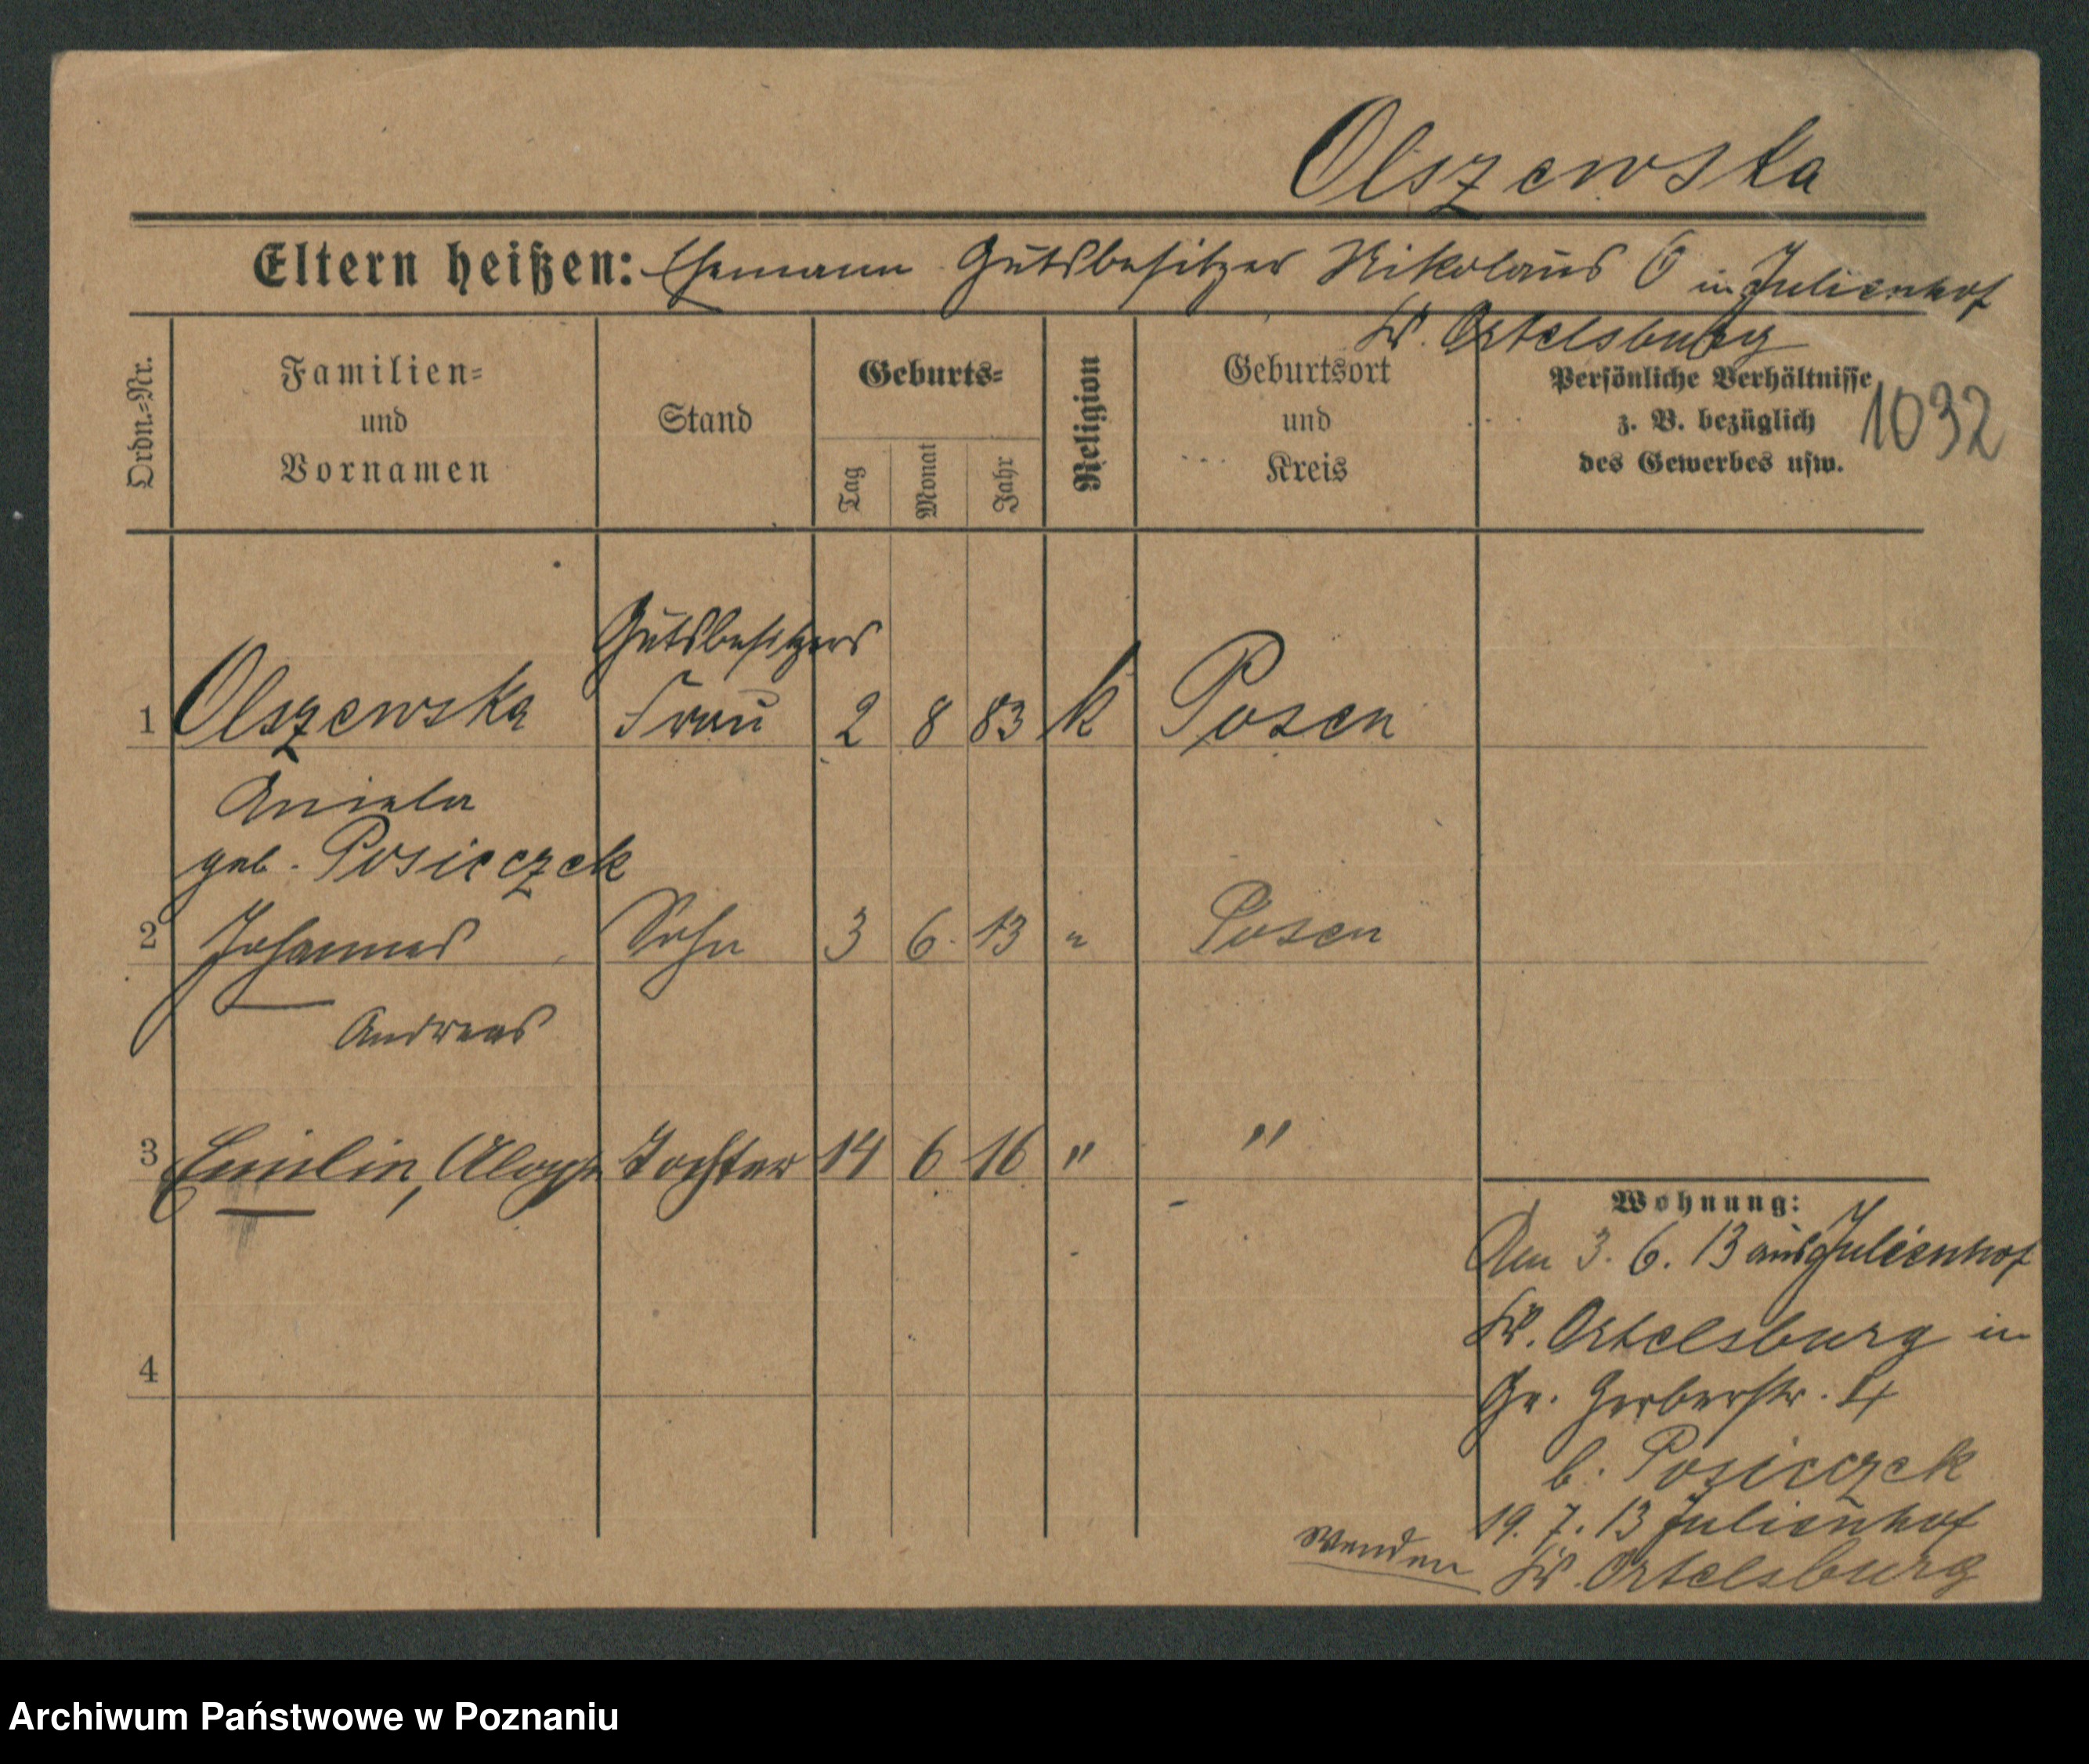 Olszewska
Eltern heißen: Ehemann Gutsbesitzer Nikolaus O in Julienhof
Kr. Ortelsburg
Ordn.=Nr.
Familien=
und
Vornamen
Stand
Geburts=
Tag
Monat
Jahr
Religion
Geburtsort
und
Kreis
Persönliche Verhältnisse
z. B. bezüglich
des Gewerbes usw.
1032
Gutsbesitzers
1 Olszewska Frau 2 8 83 k Posen
Aniela
geb. Posieczek
2 Johannes Sohn 3 6. 13 " Posen
Andreas
3 Emilie, Tochter 14 6 16 " "
4
Wohnung:
Am 3. 6. 13 aus Julienhof
Kr. Ortelsburg in
Gr. Gerberstr. 4
b. Posieczek
19. 7. 13 Julienhof
Kr. Ortelsburg
Wenden
Archiwum Państwowe w Poznaniu